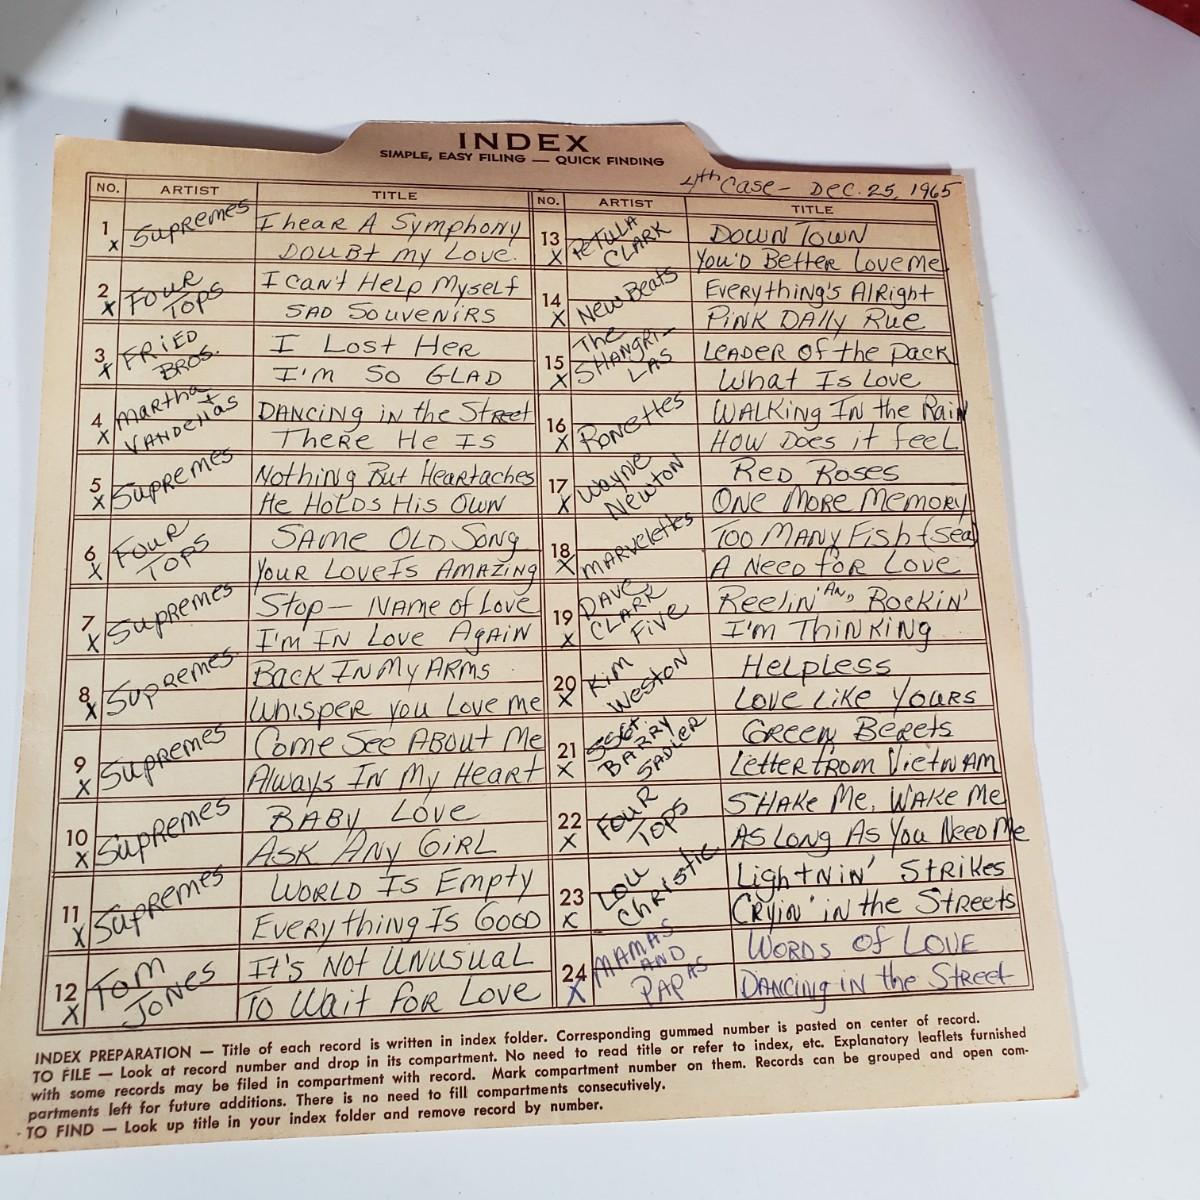 INDEX
SIMPLE, EASY FILING — QUICK FINDING
4th Case - Dec. 25, 1965
NO. ARTIST TITLE
1 x Supremes
I hear A Symphony
Doubt my Love.
2 x Four Tops
I can't Help Myself
SAD Souvenirs
3 x Fried Bros.
I Lost Her
I'm So GLAD
4 x Martha + Vandellas
Dancing in the Street
There He Is
5 x Supremes
Nothing But Heartaches
He Holds His Own
6 x Four Tops
Same Old Song
Your Love Is Amazing
7 x Supremes
Stop — Name of Love
I'm In Love Again
8 x Supremes
Back In My Arms
Whisper you Love me
9 x Supremes
Come See About Me
Always In My Heart
10 x Supremes
BABY Love
ASK ANY GIRL
11 x Supremes
World Is Empty
Everything Is Good
12 x Tom Jones
It's Not Unusual
To Wait for Love
NO. ARTIST TITLE
13 x Petula Clark
Down Town
You'd Better Love Me
14 x New Beats
Everything's Alright
Pink Dally Rue
15 x The Shangri-Las
Leader of the Pack
What Is Love
16 x Ronettes
Walking In the Rain
How Does it feel
17 x Wayne Newton
Red Roses
One More Memory
18 x Marvelettes
Too Many Fish (Sea)
A Need for Love
19 x Dave Clark Five
Reelin' And Rockin'
I'm Thinking
20 x Kim Weston
Helpless
Love Like Yours
21 x SSgt Barry Sadler
Green Berets
Letter from Vietnam
22 x Four Tops
Shake Me, Wake Me
As Long As You Need Me
23 x Lou Christie
Lightnin' Strikes
Cryin' in the Streets
24 x Mamas and Papas
Words of Love
Dancing in the Street
INDEX PREPARATION — Title of each record is written in index folder. Corresponding gummed number is pasted on center of record.
TO FILE — Look at record number and drop in its compartment. No need to read title or refer to index, etc. Explanatory leaflets furnished
with some records may be filed in compartment with record. Mark compartment number on them. Records can be grouped and open com-
partments left for future additions. There is no need to fill compartments consecutively.
TO FIND — Look up title in your index folder and remove record by number.